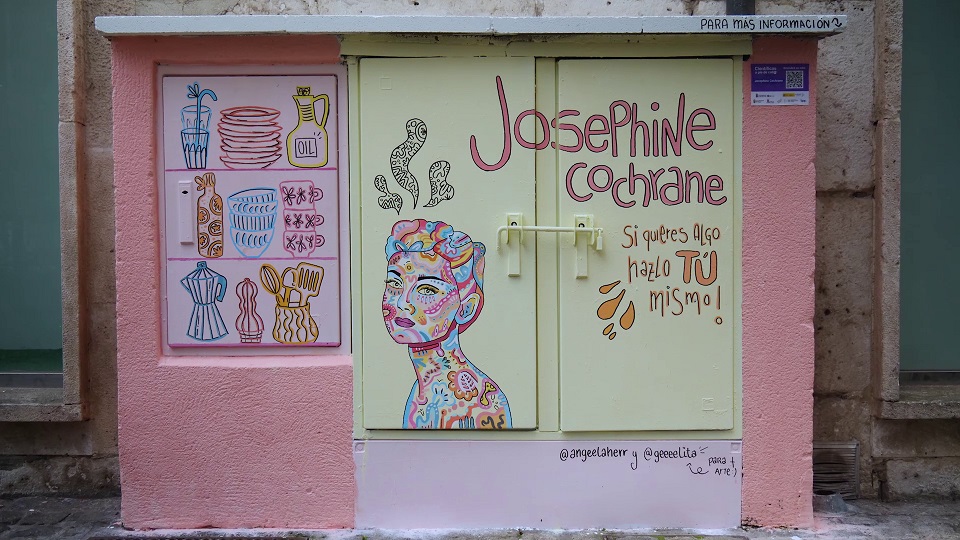 PARA MÁS INFORMACIÓN
JOSEPHINE
COCHRANE
SI QUIERES ALGO
HAZLO TÚ
MISMO!
OIL
@angeelaherr y @geeeelita
PARA +
ARTE